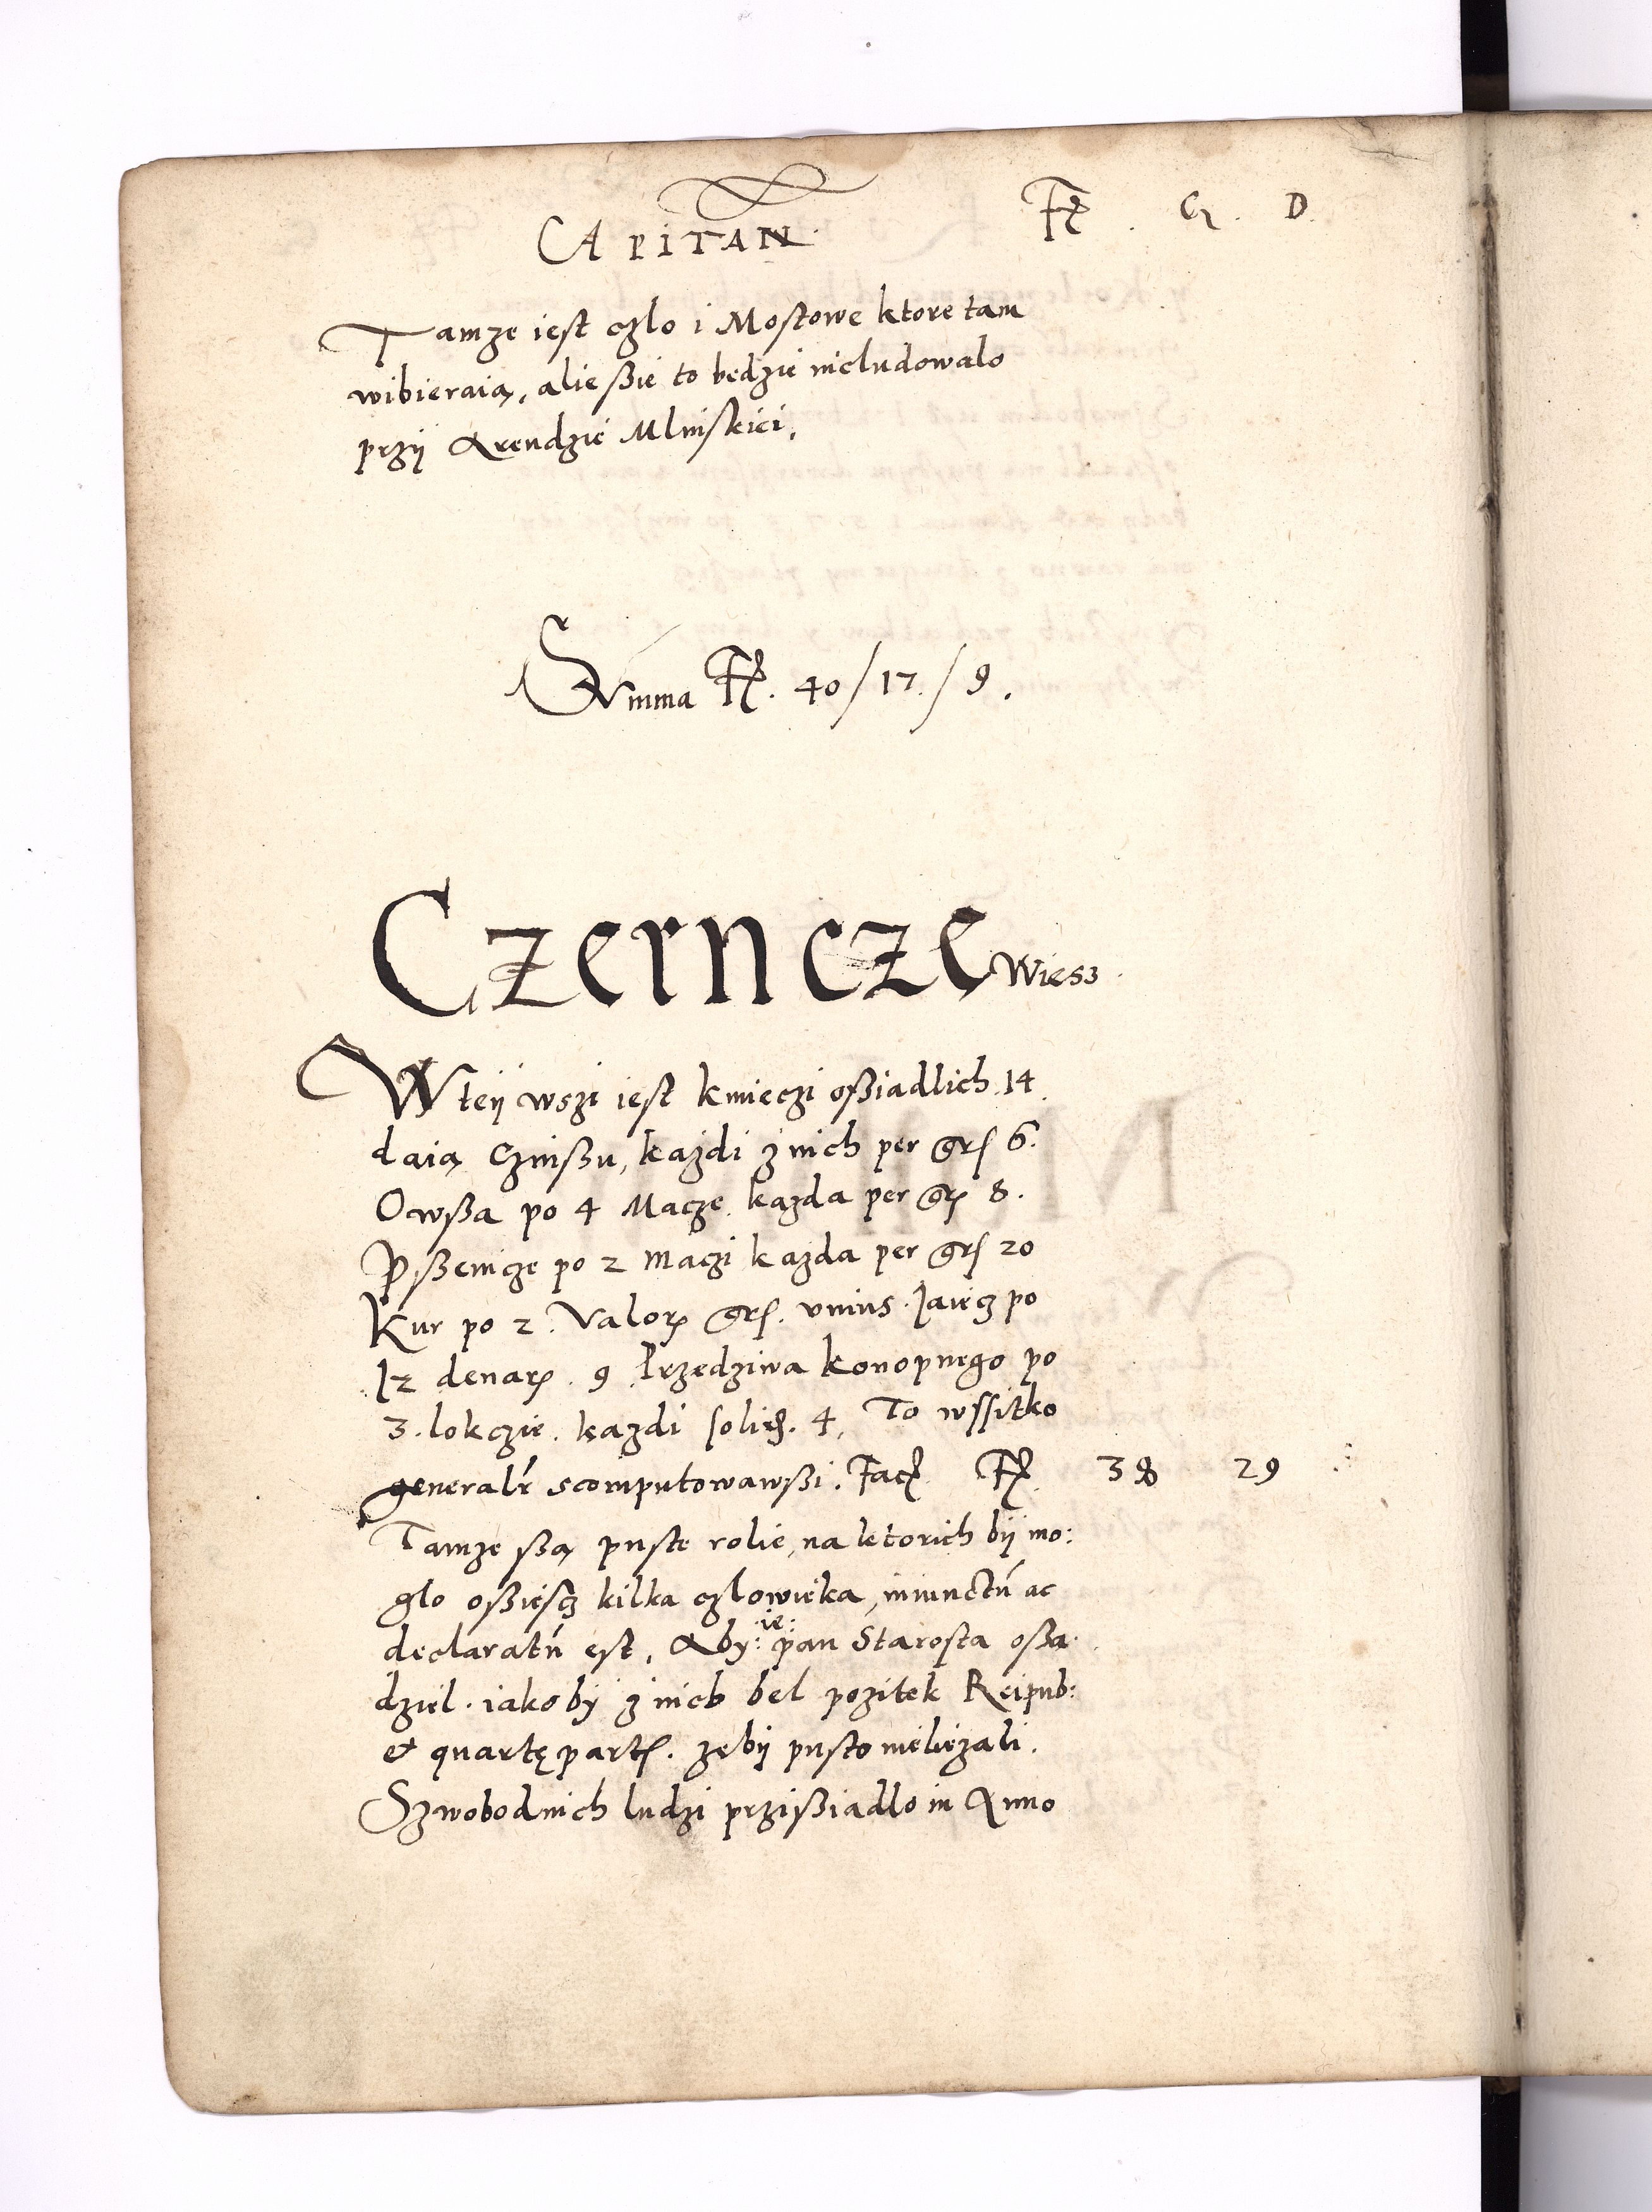 CAPITAN. Fl. G. D.
Tamze iest czlo i Mostowe ktore tam
wibieraią, alie ßie to bedzie nicludowalo
przij Arendzie Mlinskiei.
Summa Fl. 40/17/9.
Czerncze Wiesz.
W teij wszi iest kmieczi oßiadlich 14.
daią Czinßu, każdi z nich per grs 6.
Owßa po 4 Macze kazda per grs 8.
Pßenicze po 2 Maczi kazda per grs 20
Kur po 2. Valor. grs. unius. Jaiecz po
12 denar. 9 Przedziwa konopnego po
3. lokczie. kazdi solid. 4. To wssitko
generalr scomputowawßi. Fac. Fl. 38 29
Tamze ßą puste rolie, na ktorich bij mo:
glo oßiescz kilka czlowieka, iniunctu ac
declaratu est. Aby: ie: pan Starosta oßa:
dziel. iakoby z nich bel pozitek Reipub:
et quartę part. zebij pusto nieliezali.
Szwobodnich ludzi przißiadlo in Anno